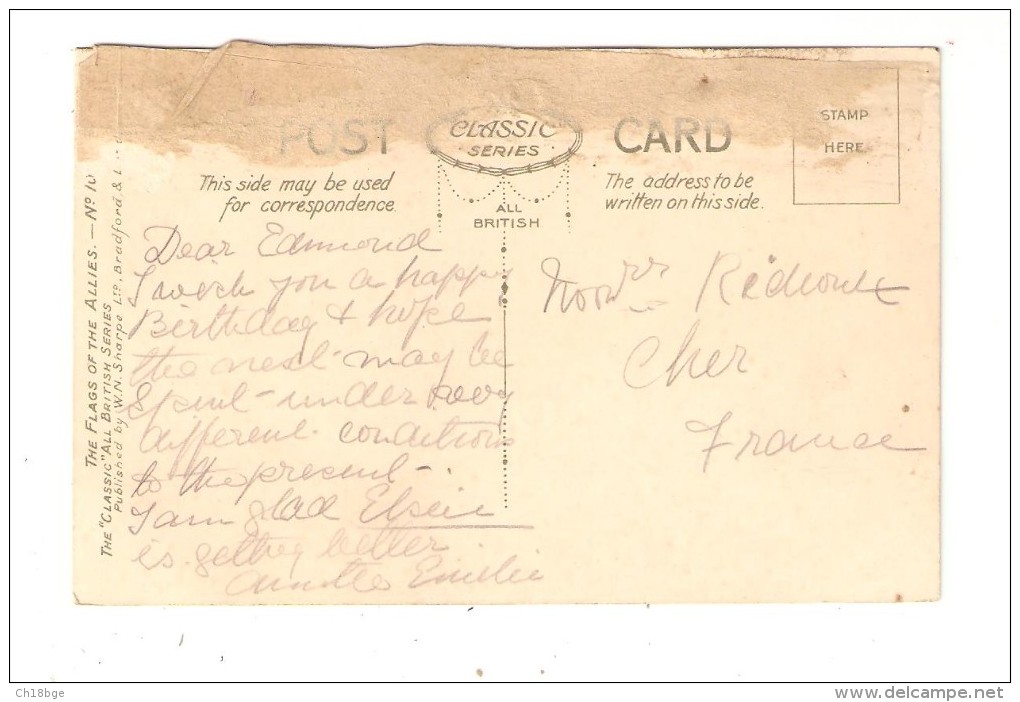 POST
CLASSIC
SERIES
CARD
STAMP
HERE
This side may be used
for correspondence.
ALL
BRITISH
The address to be
written on this side.
THE FLAGS OF THE ALLIES. — No 10
THE "CLASSIC" ALL BRITISH SERIES
Published by W.N. Sharpe LTD. Bradford &
Dear Edmond
I wish you a happy
Birthday & hope
the next may be
Spent under very
different conditions
to the present
I am glad
is getting better
Emilie
Cher
France
Ch18bge
www.delcampe.net